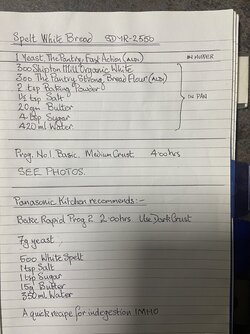 Spelt White Bread SD-YR-2550
1 Yeast The Pantry Fast Action (ALDI) IN HOPPER
300 Shipton Mill Organic White
300 The Pantry Strong Bread Flour (ALDI)
2 tsp Baking Powder
1½ tsp Salt IN PAN
20gm Butter
4 tsp Sugar
420ml Water
Prog. No.1. Basic. Medium Crust 4:00hrs
SEE PHOTOS.
Panasonic Kitchen recommends:-
Bake Rapid Prog 2 2:00hrs. Use Dark Crust
7g yeast
500 White Spelt
1tsp Salt
1tsp Sugar
15g Butter
350ml Water
A quick recipe for indigestion IMHO